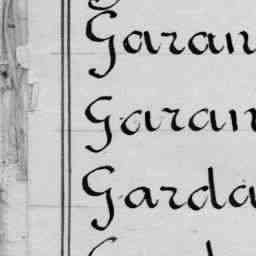 Garan
Garan
Garda